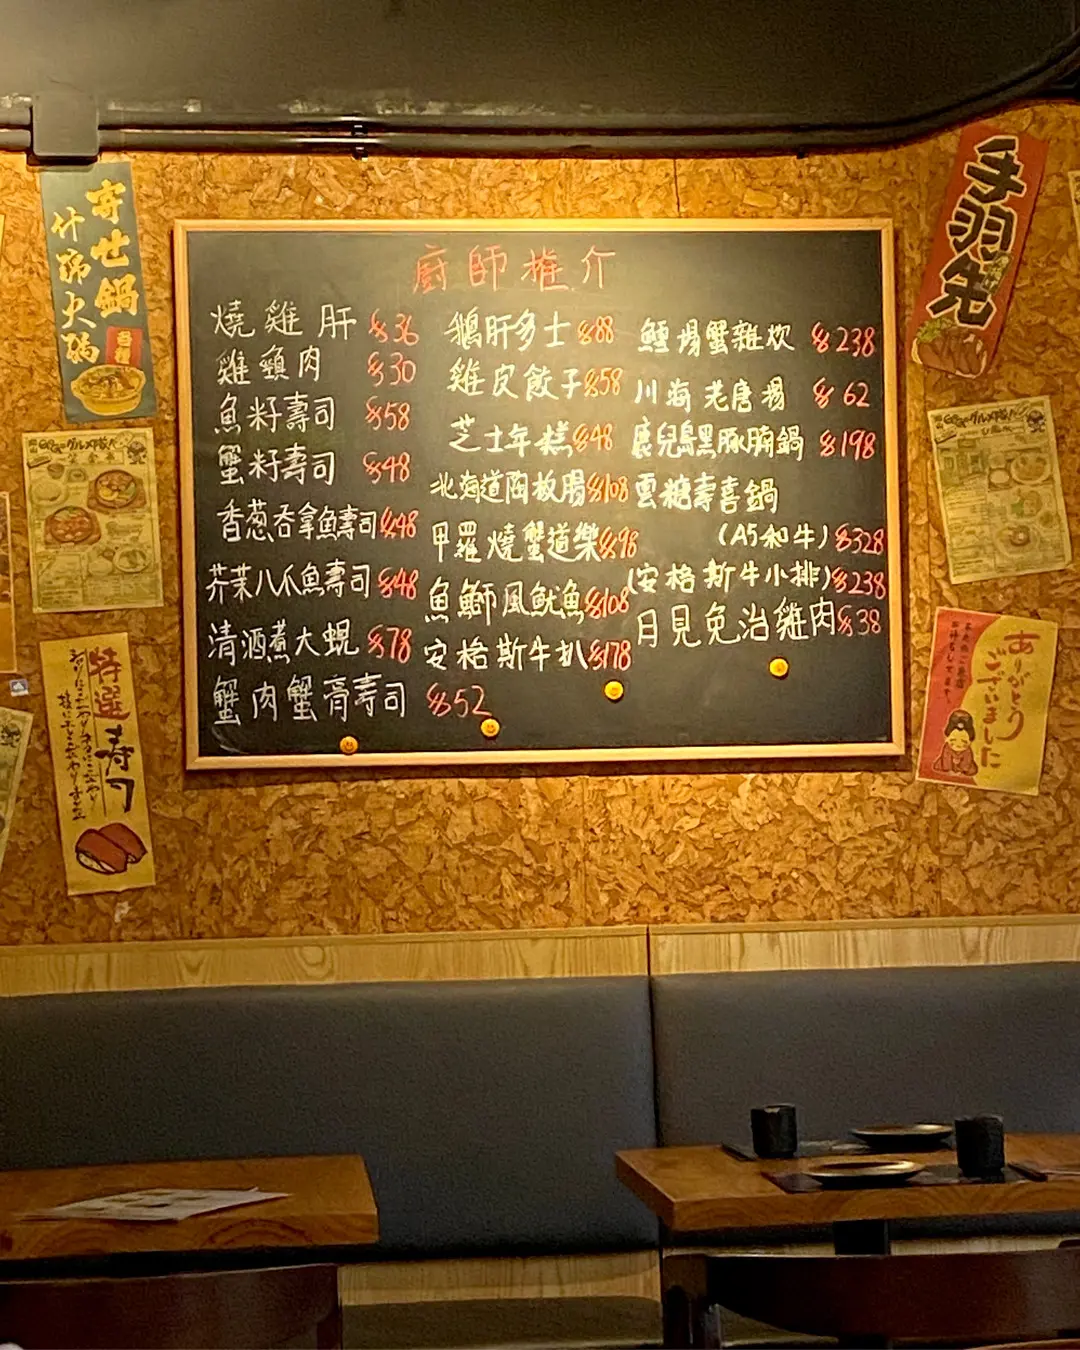 廚師推介
燒雞肝 $36
雞頸肉 $30
魚籽壽司 $58
蟹籽壽司 $48
香葱吞拿魚壽司 $48
芥茉八爪魚壽司 $48
清酒煮大蜆 $78
蟹肉蟹膏壽司 $52
鵝肝多士 $88
雞皮餃子 $58
芝士年糕 $48
北海道陶板腸 $108
甲羅燒蟹道樂 $98
魚鰤風魷魚 $108
安格斯牛扒 $178
鱈場蟹雜炊 $238
川海老唐揚 $62
鹿兒島黑豚腩鍋 $198
雲糖壽喜鍋
(A5和牛) $328
(安格斯牛小排) $238
月見免治雞肉 $38
寄世鍋
什錦火鍋
特選
寿司
手羽先
ありがとう
ございました